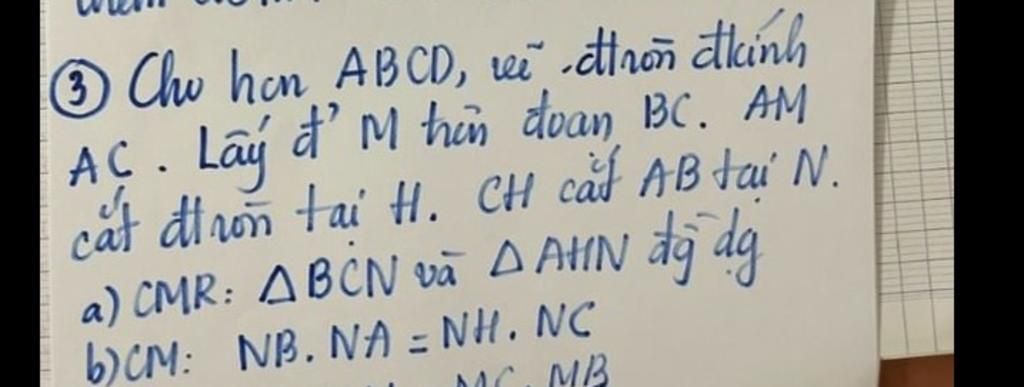 ③ Cho hcn ABCD, vẽ đtròn đkính
AC. Lấy đ' M trên đoạn BC. AM
cắt đtròn tại H. CH cắt AB tại N.
a) CMR: △BCN và △AHN đg dg
b) CM: NB. NA = NH. NC
MC. MB